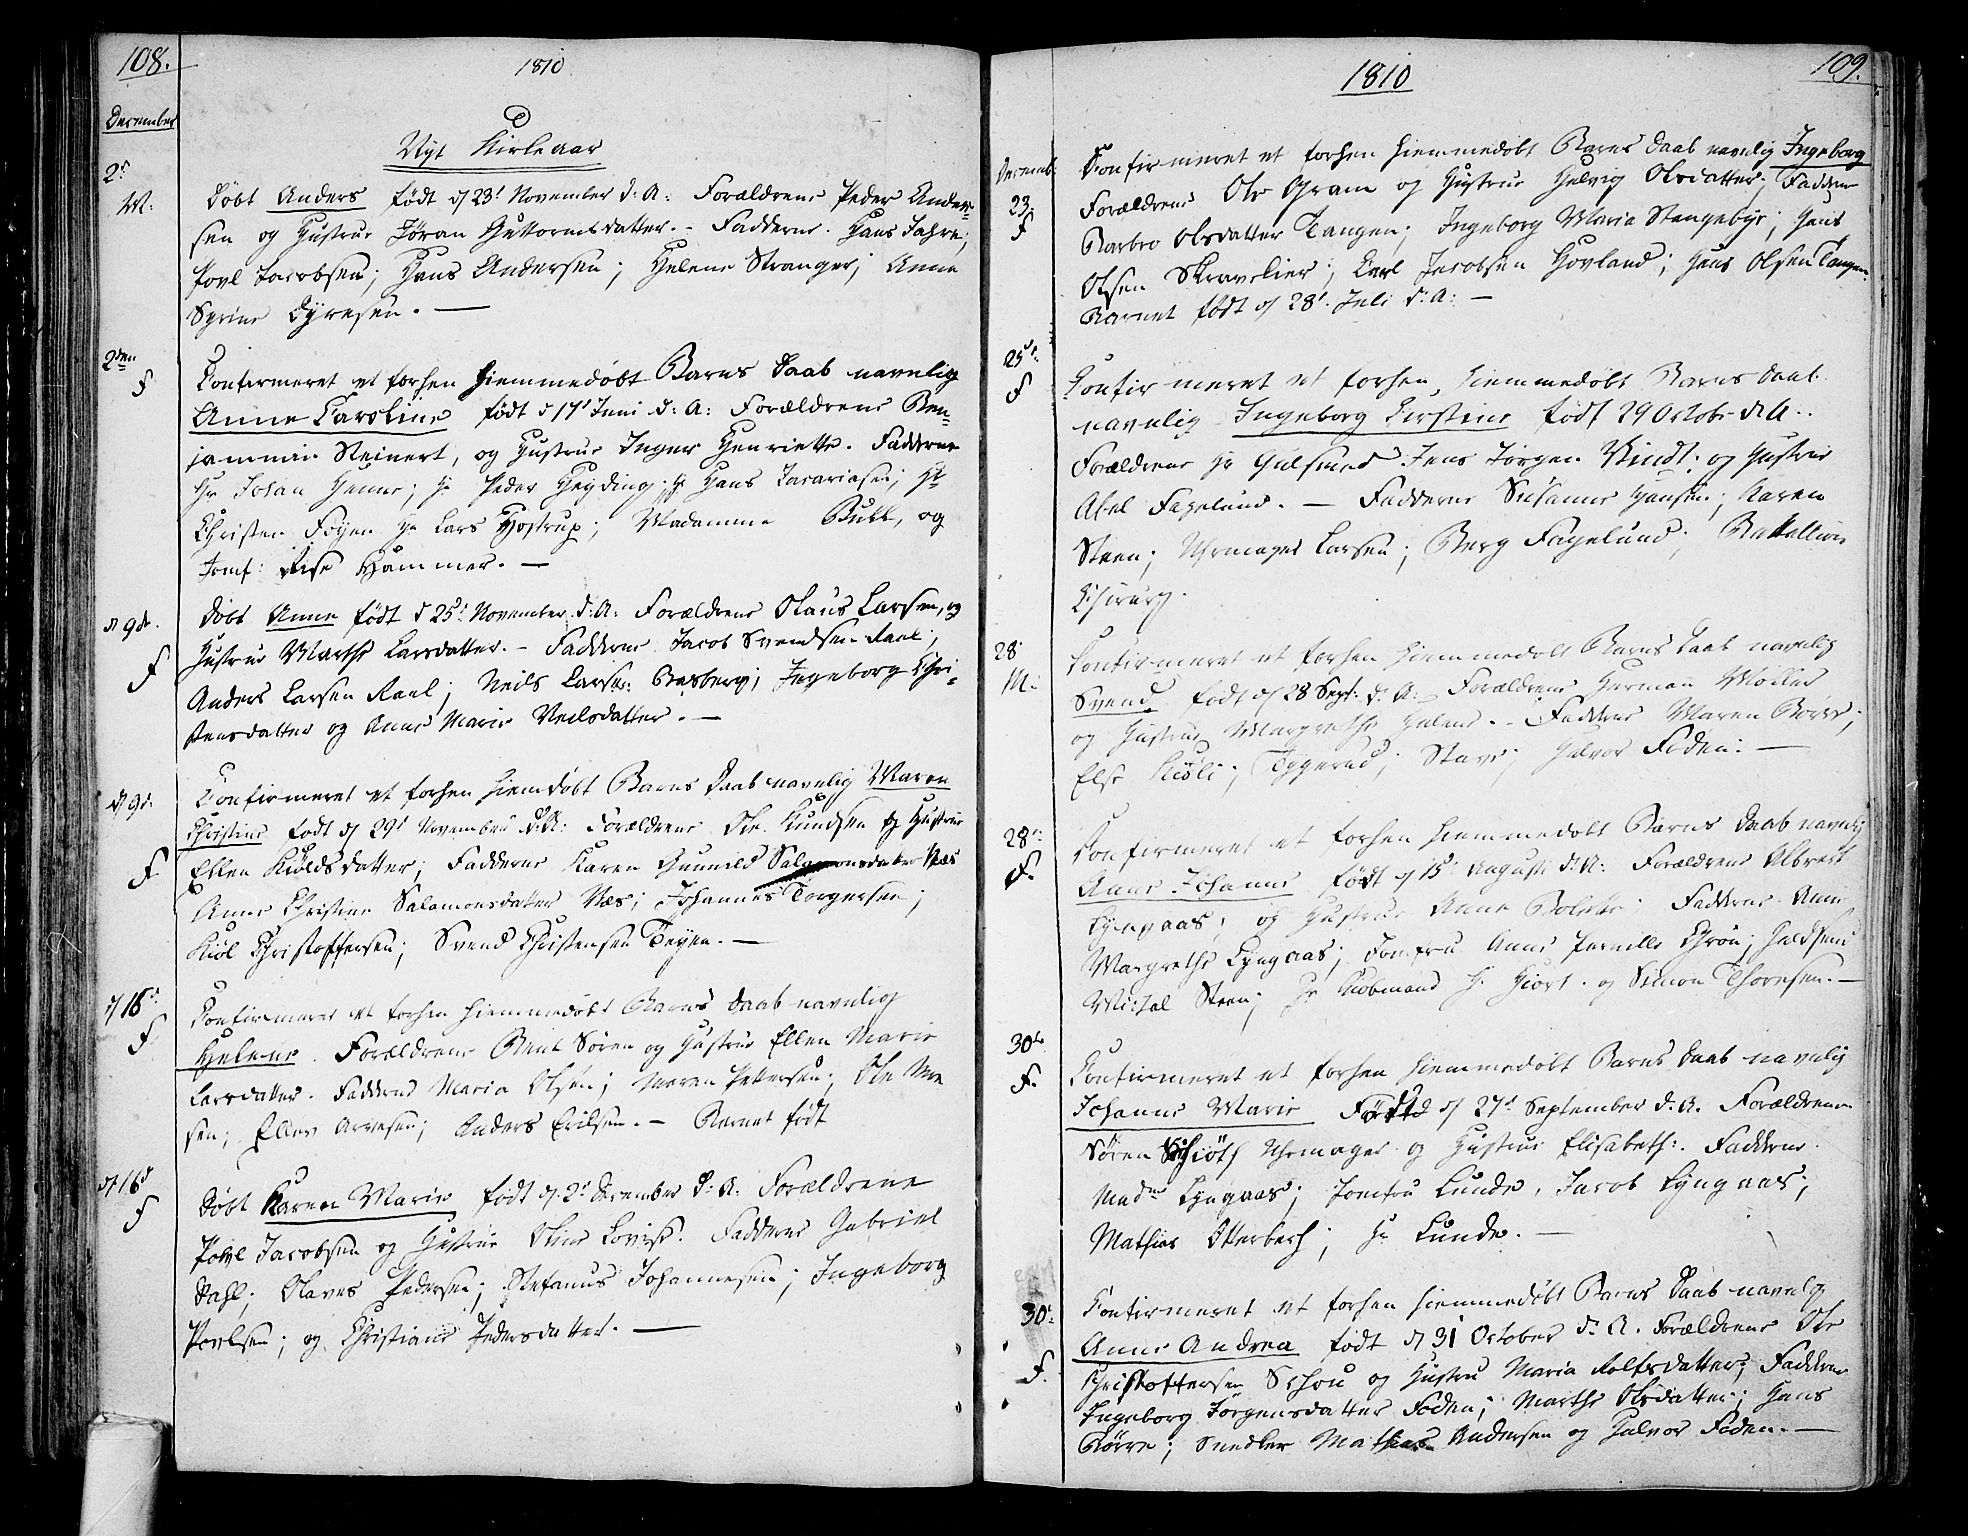 108.
1810
December
Nyt Kirkeaar
2d
M:
Døbt Anders født d 23d November d: A: Forældrene Peder Ander-
sen og Hustrue Jøran Guttormsdatter. - Fadderne. Hans Jahre;
Povl Jacobsen; Hans Andersen; Helene Stranger; Anne
Syrine Dyresen. —
2den
F
Confirmeret et forhen hiemmedøbt Barns Daab navnlig
Anne Caroline født d 17d Juni d: A: Forældrene Ben-
jammin Steinert, og Hustrue Inger Henriette. Fadderne
Hr Johan ; Hr Peder Heyding; Hr Hans Zacariasen; Hr
Christen Foyen Hr Lars Hostrup; Madamme Bull, og
Jomf: Hammer. —
d 9de.
F
Døbt Anne født d 25d November d: A: Forældrene Olaus Larsen, og
Hustrue Marthe Larsdatter. - Fadderne Jacob Svendsen Rael;
Anders Larsen Rael; Neils Larsen Basberg; Ingeborg Chri-
stensdatter og Anne Marie Neilsdatter. —
d 9d:
F
Confirmeret et forhen hiemdøbt Barns Daab navnlig Maren
Christine født d 29d November d: A: Forældrene Ole Knudsen og Hustrue
Ellen Kiøldsdatter; Fadderne Karen Gunnild Salamonsdatter Næs
Anne Christine Salamonsdatter Næs; Johannes Torgersen;
Kiøl Christoffersen; Svend Christensen Teyen. —
d 16d
F
Confirmeret et forhen hiemmedøbt Barns Daab navnlig
Helene. Forældrene Bent Sören og Hustrue Ellen Marie
Larsdatter. Fadderne Maria Olsen; Maren Pettersen; Ole
sen; Ellen Arvesen; Anders Erilsen. — Barnet født
d 16d
F
Døbt Karen Marie født d. 2d December d: A: Forældrene
Povl Jacobsen og Hustrue Stine Lovise. Fadderne Gabriel
Dahl; Olaves Pedersen; Stefanus Johannesen; Ingeborg
Povlsen; og Christiane Pedersdatter. —
109.
1810
Decemb:
23.
F
Confirmeret et forhen hiemmedøbt Barns Daab navnlig Ingeborg
Forældrene Ole Gram og Hustrue Helvig Olsdatter; Fadderne
Barbro Olsdatter Tangen; Ingeborg Maria Stengebye; Hans
Olsen Skravelier; Carl Jacobsen Hovland; Hans Olsen Tangen
Barnet født d 28d. Juli d: A: —
25de
F
Confirmeret et forhen hiemmedøbt Barns Daab
navnlig Ingeborg Kirstine født 29 Octobr d: A:
Forældrene Hr Gulsmed Jens Jörgen Vindt og Hustrue
Abel Fagelund. — Fadderne Susanne Hansen; Karen
Steen; Uhrmager Larsen; Berg Fagelund; Battallions
Chirurg.
28
M:
Confirmeret et forhen hiemmedøbt Barns Daab navnlig
Svend født d 28 Sept: d: A: Forældrene Herman Møller
og Hustrue Margrethe Helene. — Fadderne Maren Borre;
Else Kiöli; Tyggerud; Stavs; Halvor Foden. —
28d
F.
Confirmeret et forhen hiemmedøbt Barns Daab navnlig
Anne Johanne født d 15d August d: A: Forældrene Albrect
Lyngaas; og Hustrue Anne Bolette Fadderne Anne
Margrethe Lyngaas; Jomfru Anne Pernille Chrön; Guldsmed
Michal Steen; Hr Kiøbmand H. Hiort. og Simon Thoresen. —
30te
F.
Confirmeret et forhen hiemmedøbt Barns Daab navnlig
Johanne Marie Född d 27d September d. A. Forældrene
Søren Schiöth Uhrmager og Hustrue Elisabeth. Fadderne
Madme Lyngaas; Jomfru Lunde, Jacob Lyngaas;
Mathias Otterbech; Hr Lunde. —
30d
F.
Confirmeret et forhen hiemmedøbt Barns Daab navnlig
Anne Andrea født d 31 October d. A. Forældrene Ole
Christoffersen Schou og Hustru Maria Rolfsdatter; Fadderne
Ingeborg Jörgensdatter Foden; Marthe Olsdatter; Hans
Börre; Snedker Mathias Andersen og Halvor Foden. —